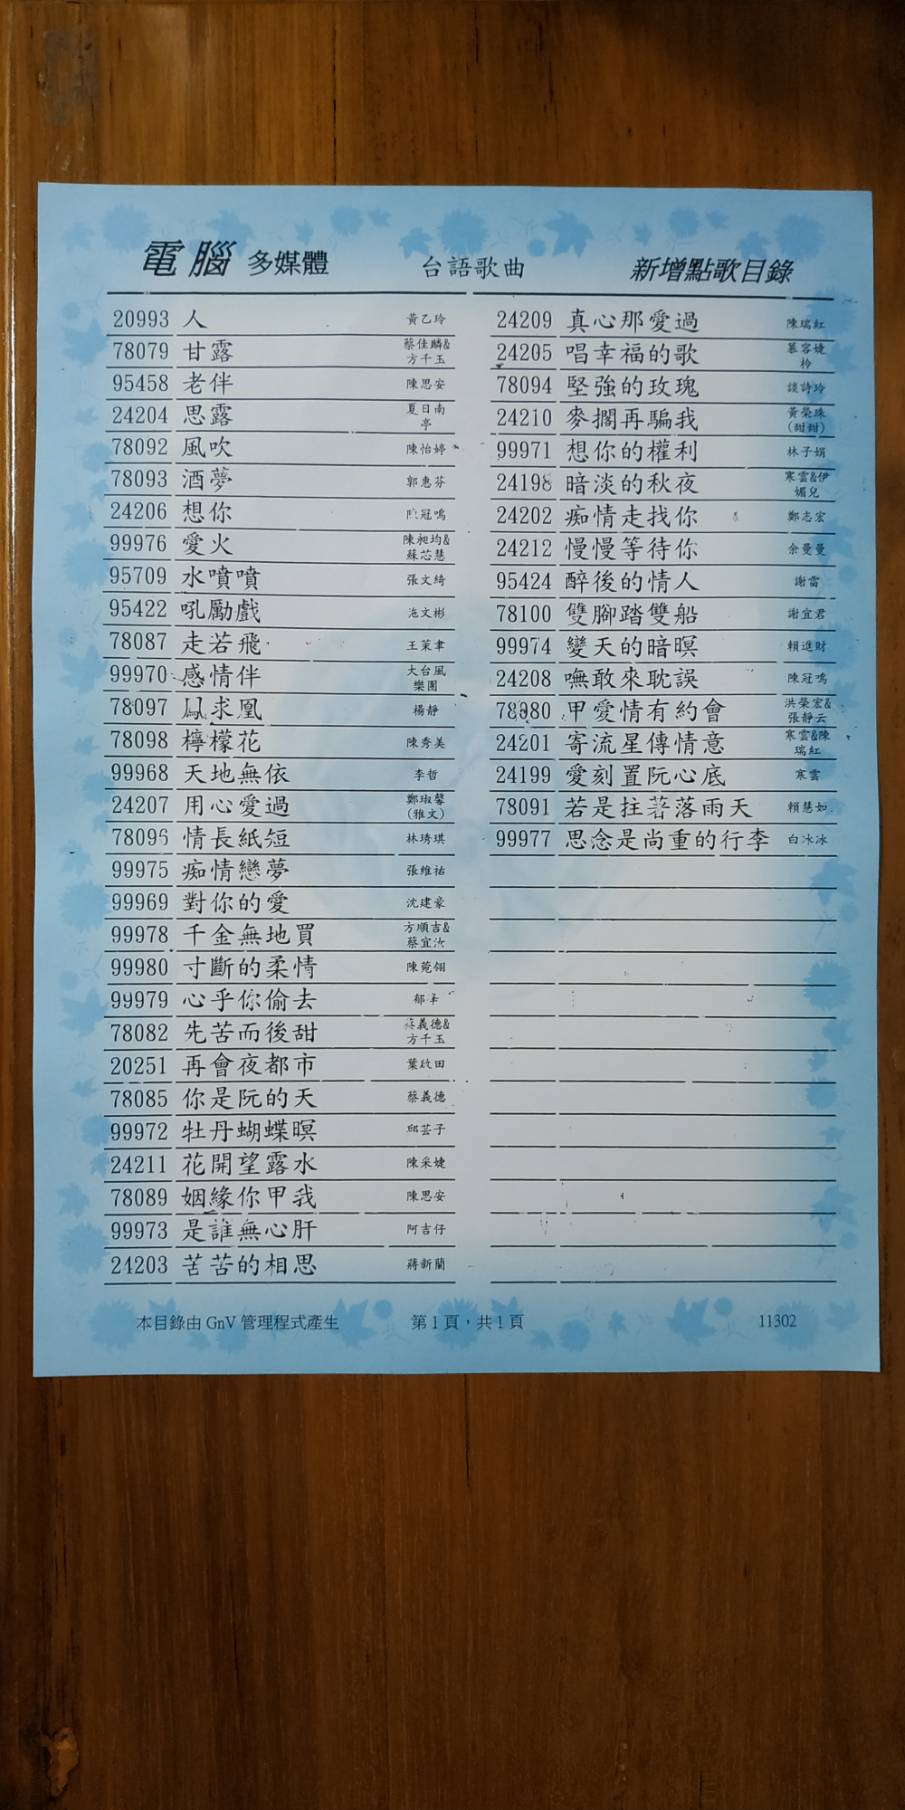 電腦 多媒體 台語歌曲 新增點歌目錄
20993 人 黃乙玲
78079 甘露 蔡佳麟&方千玉
95458 老伴 陳思安
24204 思露 夏日南亭
78092 風吹 陳怡婷
78093 酒夢 郭惠芬
24206 想你 陳冠鳴
99976 愛火 陳昶均&蘇芯慧
95709 水噴噴 張文綺
95422 吼勵戲 施文彬
78087 走若飛 王茱聿
99970 感情伴 大台風樂團
78097 鳳求凰 楊靜
78098 檸檬花 陳秀美
99968 天地無依 李哲
24207 用心愛過 鄭琡馨(雅文)
78096 情長紙短 林琇琪
99975 痴情戀夢 張維祐
99969 對你的愛 沈建豪
99978 千金無地買 方順吉&蔡宜汝
99980 寸斷的柔情 陳菀翎
99979 心乎你偷去
78082 先苦而後甜 蔡義德&方千玉
20251 再會夜都市 葉啟田
78085 你是阮的天 蔡義德
99972 牡丹蝴蝶暝 邱芸子
24211 花開望露水 陳采婕
78089 姻緣你甲我 陳思安
99973 是誰無心肝 阿吉仔
24203 苦苦的相思 蔣新蘭
24209 真心那愛過 陳瑞紅
24205 唱幸福的歌 慕容婕柃
78094 堅強的玫瑰 談詩玲
24210 麥擱再騙我 黃榮珠(甜甜)
99971 想你的權利 林子娟
24198 暗淡的秋夜 寒雲&伊媚兒
24202 痴情走找你 鄭志宏
24212 慢慢等待你 余曼曼
95424 醉後的情人 謝雷
78100 雙腳踏雙船 謝宜君
99974 變天的暗暝 賴進財
24208 嘸敢來耽誤 陳冠鳴
78080 甲愛情有約會 洪榮宏&張靜云
24201 寄流星傳情意 寒雲&陳瑞紅
24199 愛刻置阮心底 寒雲
78091 若是拄著落雨天 賴慧如
99977 思念是尚重的行李 白冰冰
本目錄由 GnV 管理程式產生 第1頁，共1頁 11302